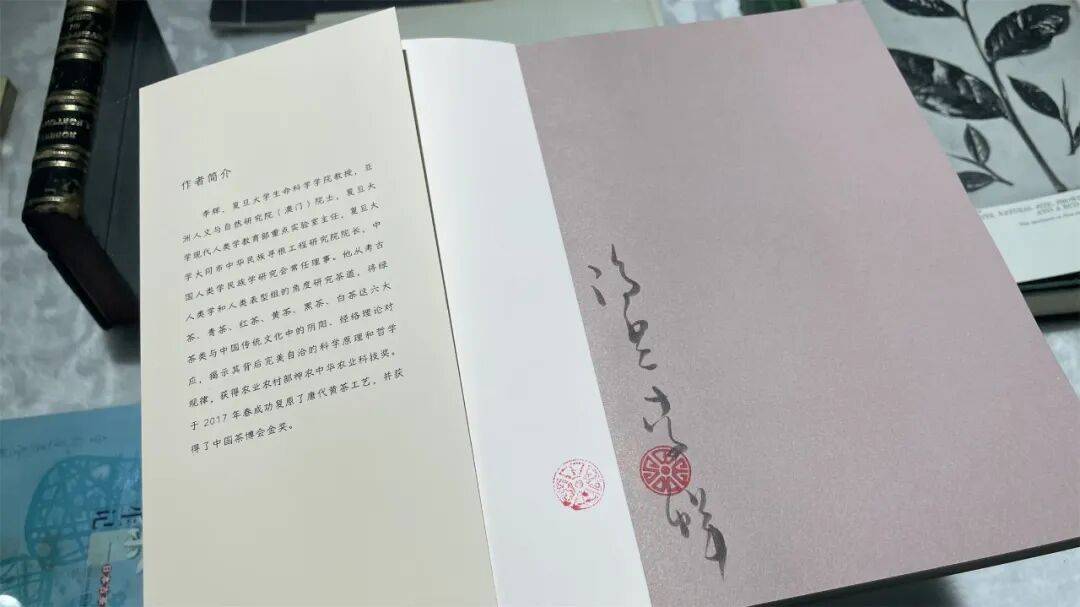 作者简介
李辉，复旦大学生命科学学院教授，亚
洲人文与自然研究院（澳门）院士，复旦大
学现代人类学教育部重点实验室主任，复旦大
学大同市中华民族寻根工程研究院院长，中
国人类学民族学研究会常任理事。他从考古
人类学和人类表型组的角度研究茶道，将绿
茶、青茶、红茶、黄茶、黑茶、白茶这六大
茶类与中国传统文化中的阴阳、经络理论对
应，揭示其背后完美自洽的科学原理和哲学
规律，获得农业农村部神农中华农业科技奖。
于 2017 年春成功复原了唐代黄茶工艺，并获
得了中国茶博会金奖。